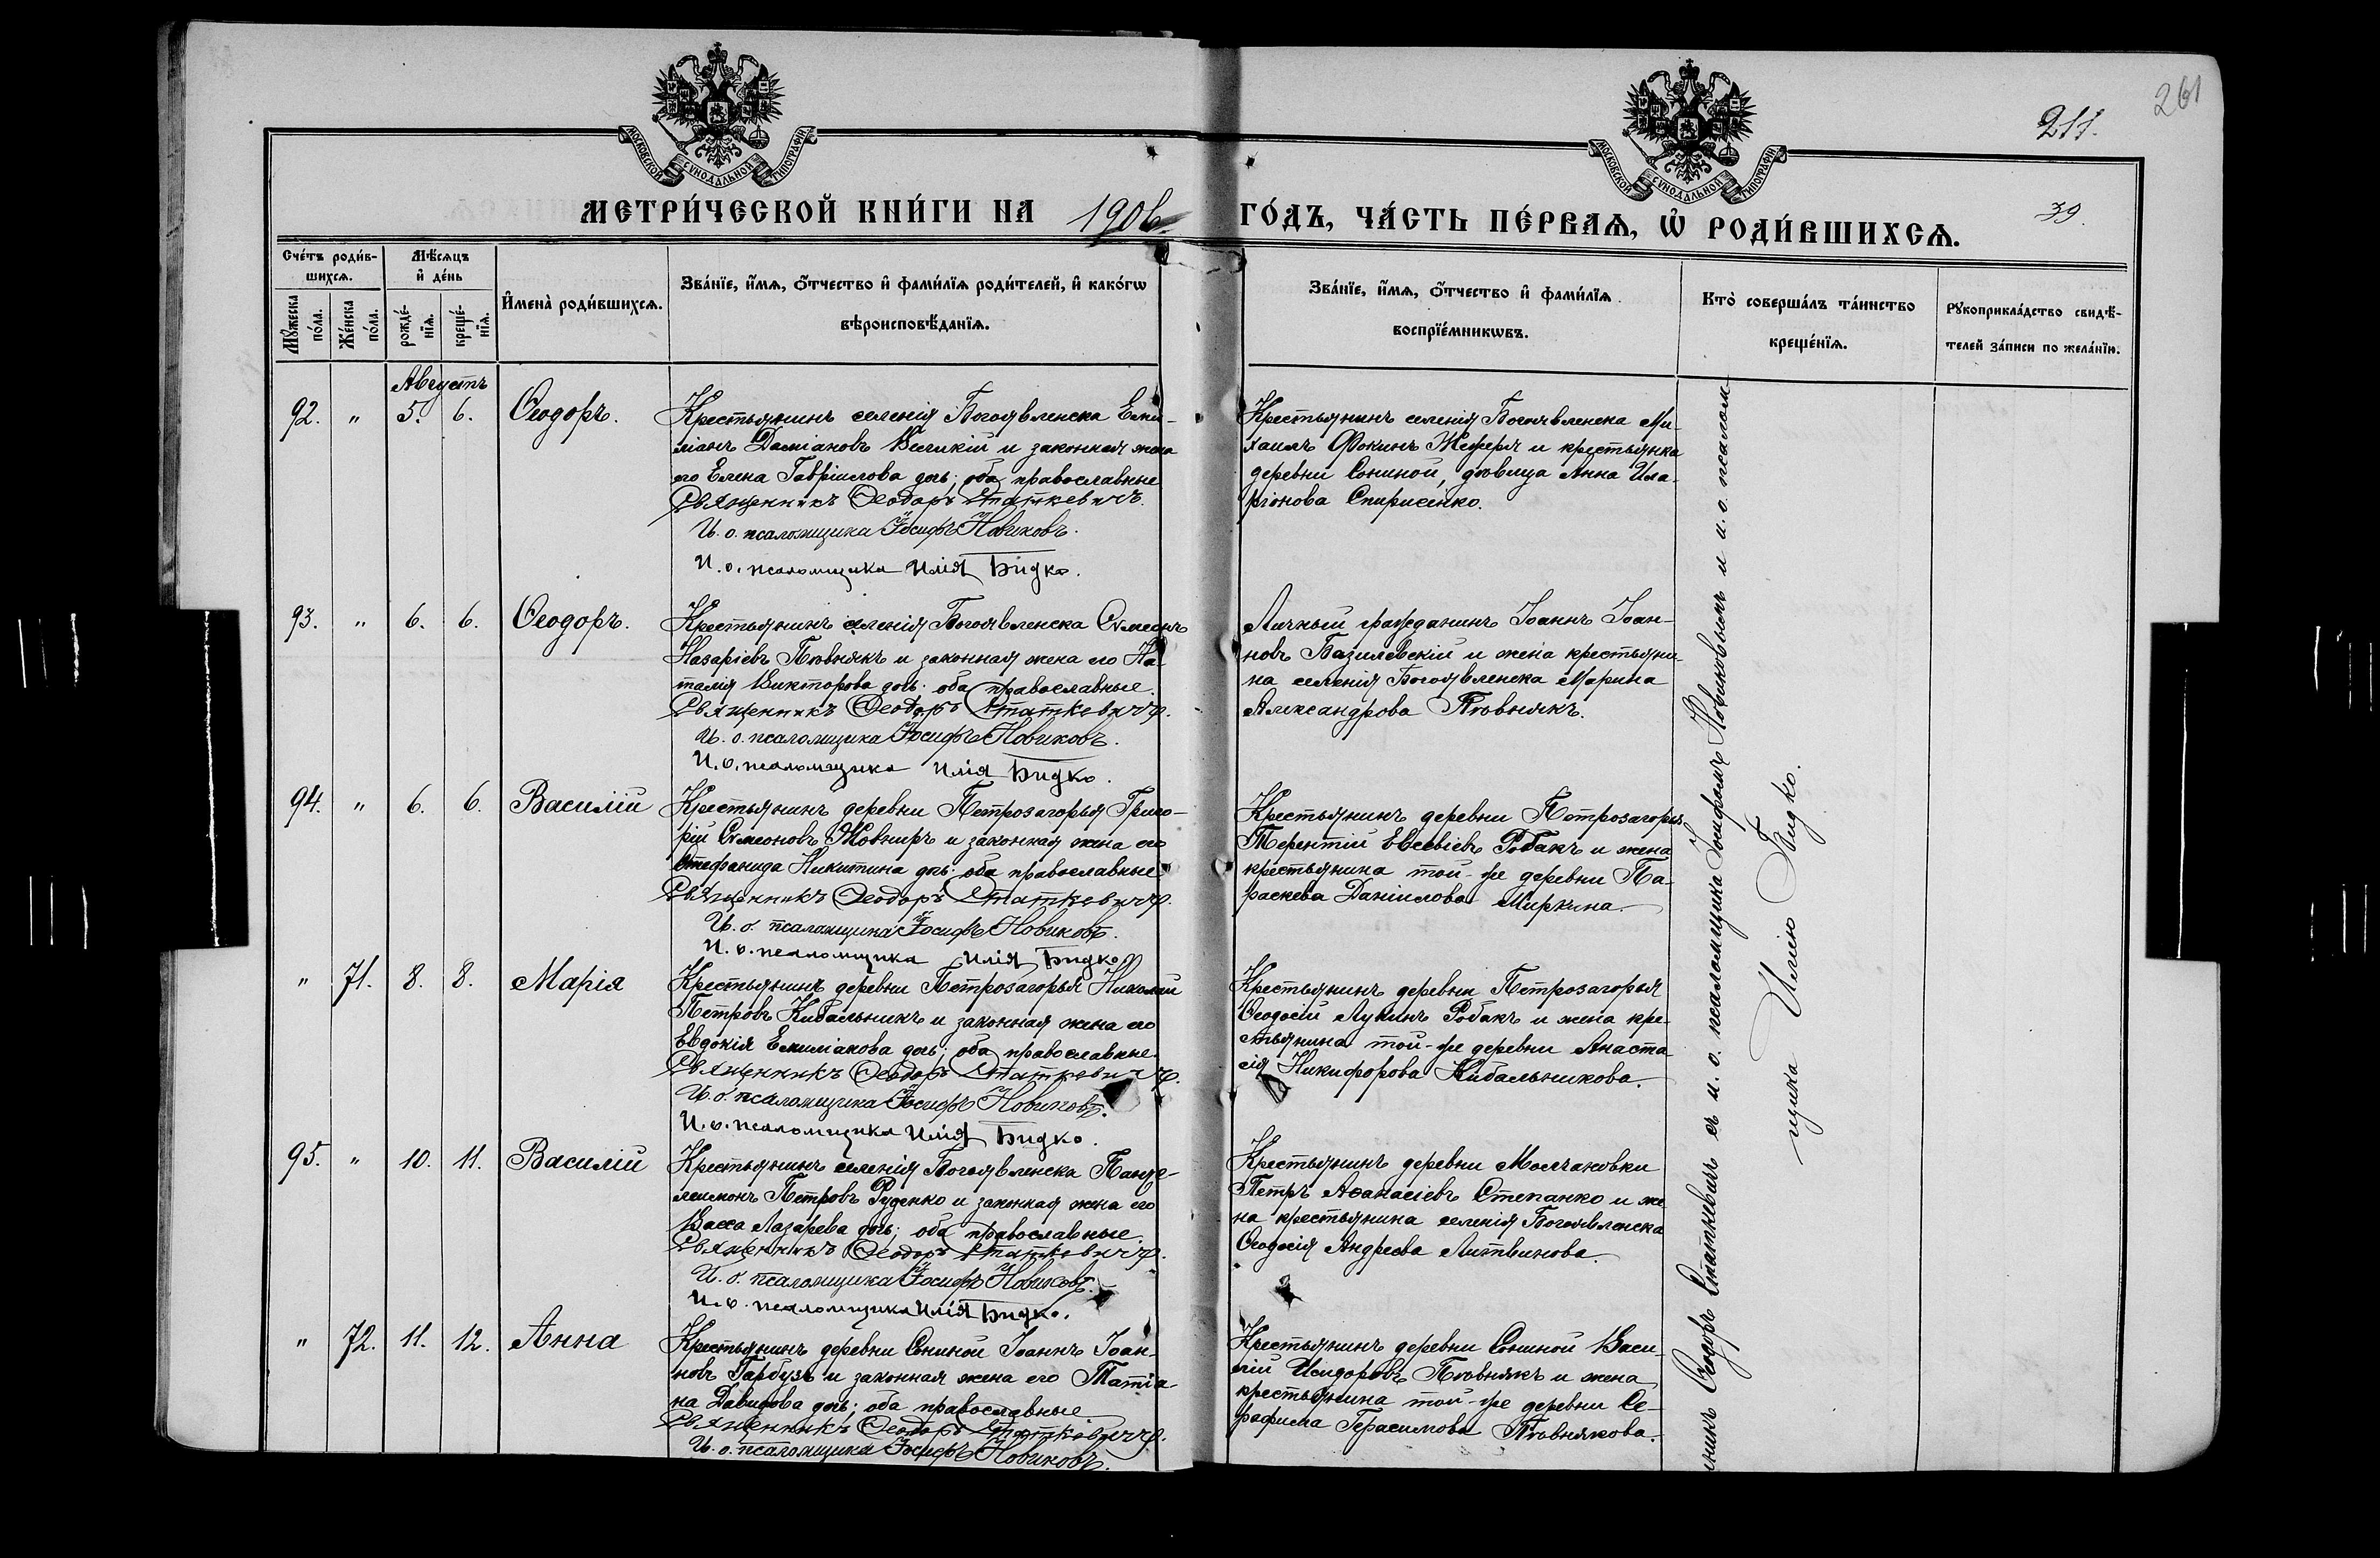 МОСКОВСКОЙ СѴНОДАЛЬНОЙ ТИПОГРАФІИ
МОСКОВСКОЙ СѴНОДАЛЬНОЙ ТИПОГРАФІИ
261
211.
39.
МЕТРИ́ЧЕСКОЙ КНИ́ГИ НА 1906 ГО́ДЪ, ЧА́СТЬ ПЕ́РВАѦ, Ѡ҆ РОДИ́ВШИХСѦ.
Сче́тъ роди́в-
шихсѧ.
Мꙋ́жеска по́ла.
Же́нска по́ла.
Мѣ́сѧцъ
и҆ де́нь
рожде́-нїѧ.
креще́-нїѧ.
И҆мена̀ роди́вшихсѧ.
Зва́нїе, и҆́мѧ, ѻ҆́тчество и҆ фами́лїѧ роди́телей, и҆ како́гѡ
вѣроисповѣ́данїѧ.
Зва́нїе, и҆́мѧ, ѻ҆́тчество и҆ фами́лїѧ
воспрїе́мникѡвъ.
Кто̀ соверша́лъ та́инство
креще́нїѧ.
Рꙋкоприкла́дство свидѣ́-
телей за́писи по жела́нїю.
Августъ
92. " 5. 6. Ѳеодоръ.
Крестьянинъ селенія Богоявленска Еми-
ліанъ Даміановъ Великій и законная жена
его Елена Гавріилова дочь; оба православные
Священникъ Ѳеодоръ Статкевичъ.
И. о. псаломщика Іосифъ Новиковъ.
И. о. псаломщика Илія Бидко.
Крестьянинъ селенія Богоявленска Ми-
хаилъ Фокинъ Жеферя и крестьянка
деревни Сониной, дѣвица Анна Ила-
ріонова Спирисенко.
93. " 6. 6. Ѳеодоръ.
Крестьянинъ селенія Богоявленска Сѵмеонъ
Назаріевъ Пѣвнякъ и законная жена его На-
талія Викторова дочь; оба православные.
Священникъ Ѳеодоръ Статкевичъ.
И. о. псаломщика Іосифъ Новиковъ.
И. о. псаломщика Илія Бидко.
Личный гражданинъ Іоаннъ Іоан-
новъ Базилевскій и жена крестьяни-
на селенія Богоявленска Марина
Александрова Пѣвнякъ.
94. " 6. 6. Василій
Крестьянинъ деревни Петрозагорья Григо-
рій Сѵмеоновъ Жовниръ и законная жена его
Стефанида Никитина дочь; оба православные.
Священникъ Ѳеодоръ Статкевичъ.
И. о. псаломщика Іосифъ Новиковъ.
И. о. псаломщика Илія Бидко.
Крестьянинъ деревни Петрозагорья
Терентій Евсевіевъ Робакъ и жена
крестьянина той-же деревни Па-
раскева Даніилова Миркина.
" 71. 8. 8. Марія
Крестьянинъ деревни Петрозагорья Николай
Петровъ Кибальникъ и законная жена его
Евдокія Емиліанова дочь; оба православные.
Священникъ Ѳеодоръ Статкевичъ.
И. о. псаломщика Іосифъ Новиковъ.
И. о. псаломщика Илія Бидко.
Крестьянинъ деревни Петрозагорья
Ѳеодосій Лукинъ Робакъ и жена кре-
стьянина той-же деревни Анаста-
сія Никифорова Кибальникова.
95. " 10. 11. Василій
Крестьянинъ селенія Богоявленска Панте-
леимонъ Петровъ Руденко и законная жена его
Васса Лазарева дочь; оба православные.
Священникъ Ѳеодоръ Статкевичъ.
И. о. псаломщика Іосифъ Новиковъ.
И. о. псаломщика Илія Бидко.
Крестьянинъ деревни Молчановки
Петръ Аѳанасіевъ Степанко и же-
на крестьянина селенія Богоявленска
Ѳеодосія Андреева Литвинова.
" 72. 11. 12. Анна
Крестьянинъ деревни Сониной Іоаннъ Іоан-
новъ Гарбузъ и законная жена его Татіа-
на Давидова дочь; оба православные
Священникъ Ѳеодоръ Статкевичъ.
И. о. псаломщика Іосифъ Новиковъ.
Крестьянинъ деревни Сониной Васи-
лій Исидоровъ Пѣвнякъ и жена
крестьянина той-же деревни Се-
рафима Герасимова Пѣвнякова.
енникъ Ѳеодоръ Статкевичъ съ и. о. псаломщика Іосифомъ Новиковымъ и и. о. псалом-
щика Иліею Бидко.